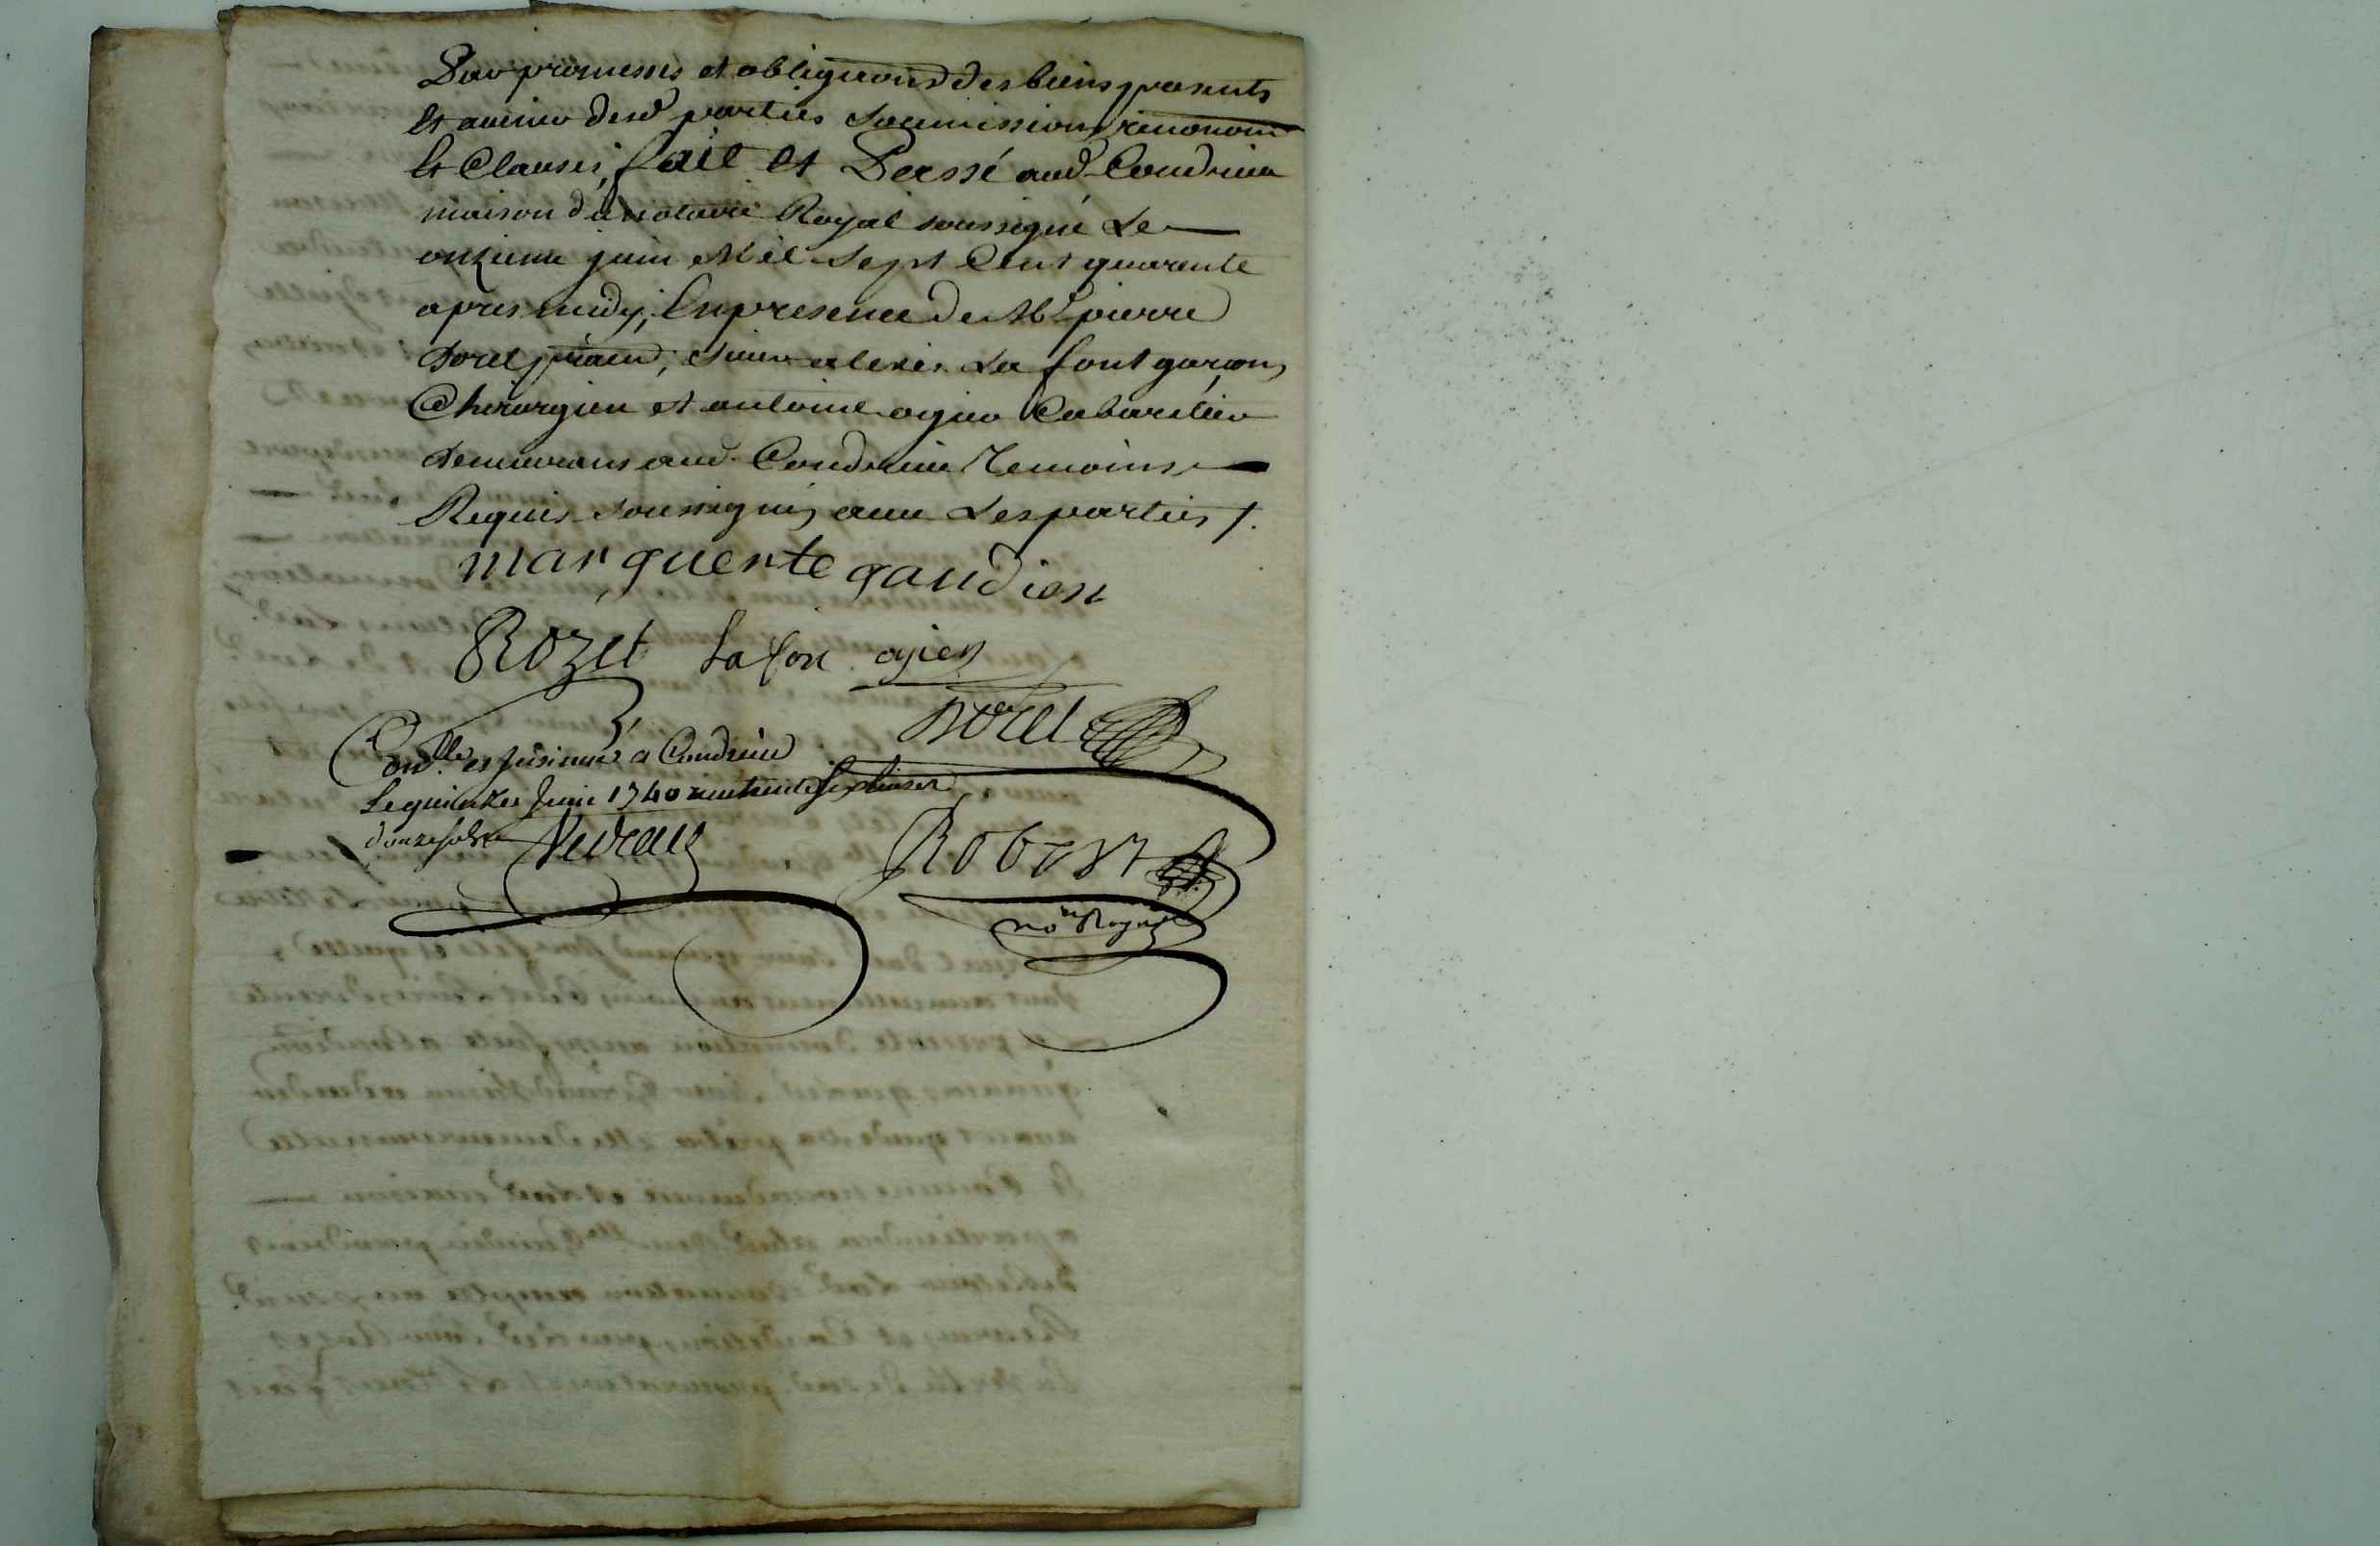 Par promesses et obligaõns des biens presents
Et avenir desd. parties soumissions renonaõns
Et Clauses, fait et Passé aud. Condrieu
maison du notaire Royal soussigné Le
onzieme juin Mil Sept Cent quarente
apres midy, En presence de Mr. pierre
Sorel, Sieur alexis La font garçon
Chirurgien et antoine ogier Cabaretier
demeurans aud. Condrieu Temoins
Requis soussignés avec Les parties /.
marguerite gaudien
Rozet Lafon ogier
Sorel
Conllé. et jnsinué a Condrieu
Le quinze Juin 1740
douze sols
Robert
nore Royal